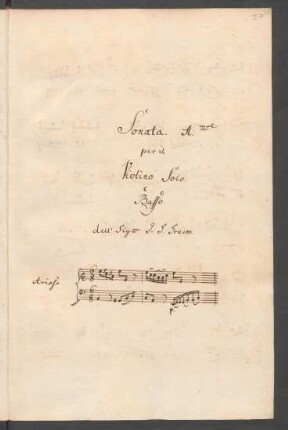 Sonata. A mol
per il
Violino Solo
e
Basso
dell Sigr J. G. Graun
Arioso